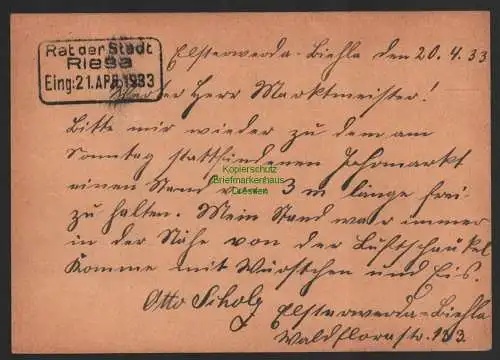 Rat der Stadt
Riesa
Eing: 21. APR. 1933
Elsterwerda-Biehla den 20.4.33
Werter Herr Marktmeister!
Bitte mir wieder zu dem am
Sonntag stattfindenen Jahrmarkt
einen Stand 3 m länge frei-
zu halten. Mein Stand war immer
in der Nähe von der Luftschaukel
Komme mit Würstchen und Eis.
Otto Scholz Elsterwerda-Biehla
Waldflorastr. 193.
Kopierschutz
Briefmarkenhaus
Dresden